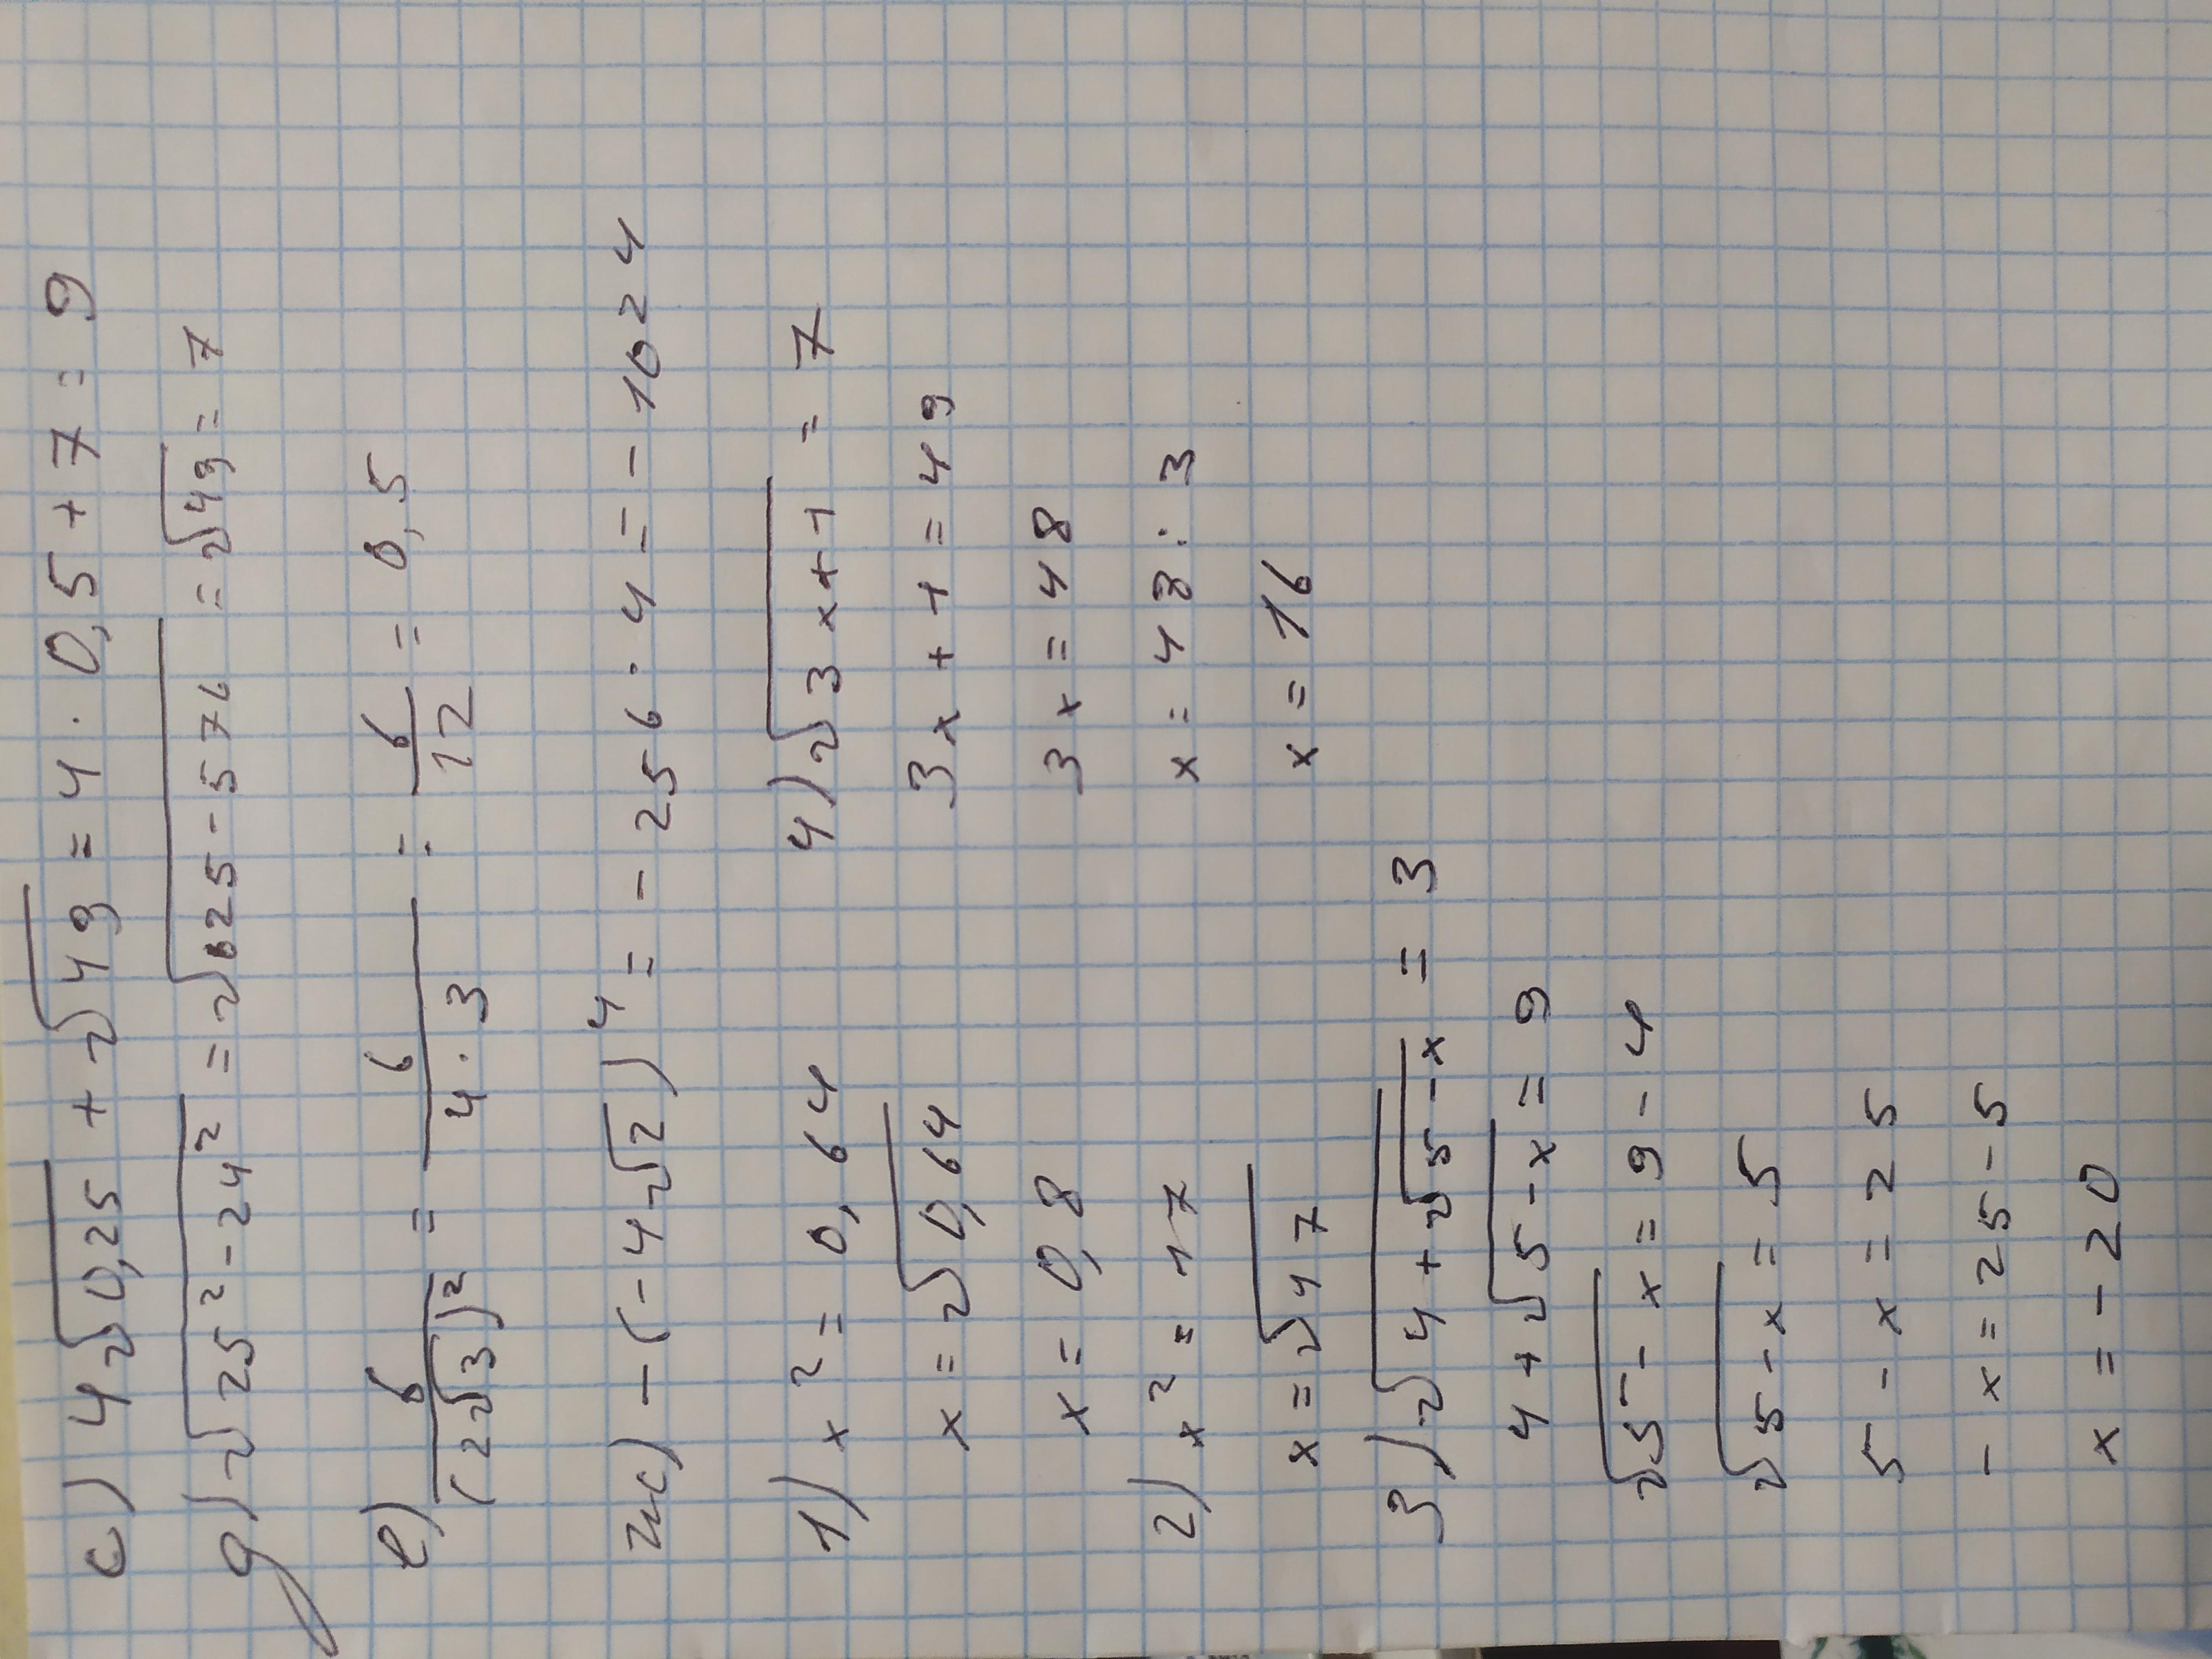 c) 4√0,25 + √49 = 4 · 0,5 + 7 = 9
g) √25² - 24² = √625 - 576 = √49 = 7
e) 6/(2√3)² = 6/4 · 3 = 6/12 = 0,5
ж) - (- 4√2)⁴ = - 256 · 4 = - 1024
1) x² = 0,64
x = √0,64
x = 0,8
2) x² = 17
x = √17
3) √4 + √5 - x = 3
4 + √5 - x = 9
√5 - x = 9 - 4
√5 - x = 5
5 - x = 25
- x = 25 - 5
x = - 20
4) √3x + 1 = 7
3x + 1 = 49
3x = 48
x = 48 : 3
x = 16